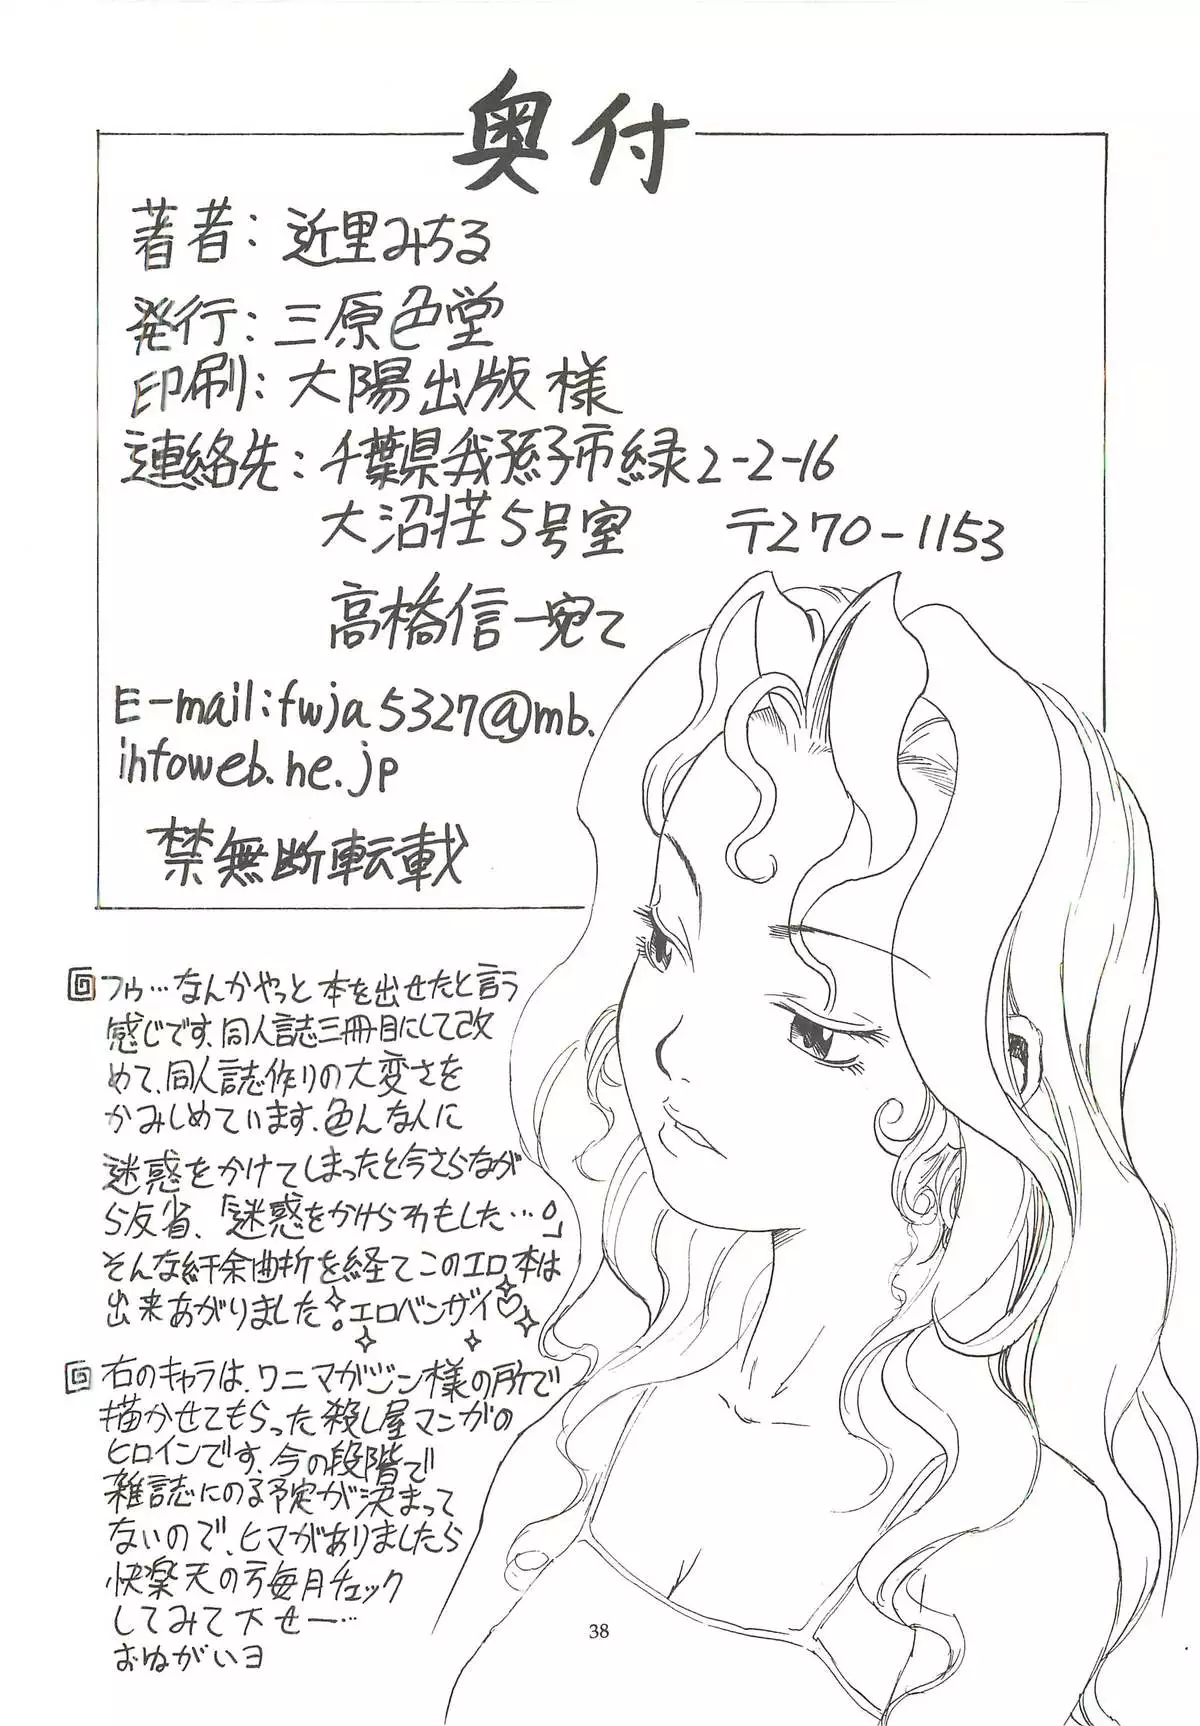 奥付
著者：近里みちる
発行：三原色堂
印刷：大陽出版様
連絡先：千葉県我孫子市緑2-2-16
大沼荘5号室 〒270-1153
高橋信一宛て
E-mail:fwja5327@mb.
infoweb.ne.jp
禁無断転載
フゥ…なんかやっと本を出せたと言う
感じです、同人誌三冊目にして改
めて、同人誌作りの大変さを
かみしめています、色んな人に
迷惑をかけてしまったと今さらなが
ら反省、「迷惑をかけられもした…。」
そんな紆余曲折を経てこのエロ本は
出来あがりました。エロバンザイ♡
右のキャラは、ワニマガジン様の所で
描かせてもらった殺し屋マンガの
ヒロインです、今の段階で
雑誌にのる予定が決まって
ないので、ヒマがありましたら
快楽天の方毎月チェック
してみて下せー…
おねがいヨ
38